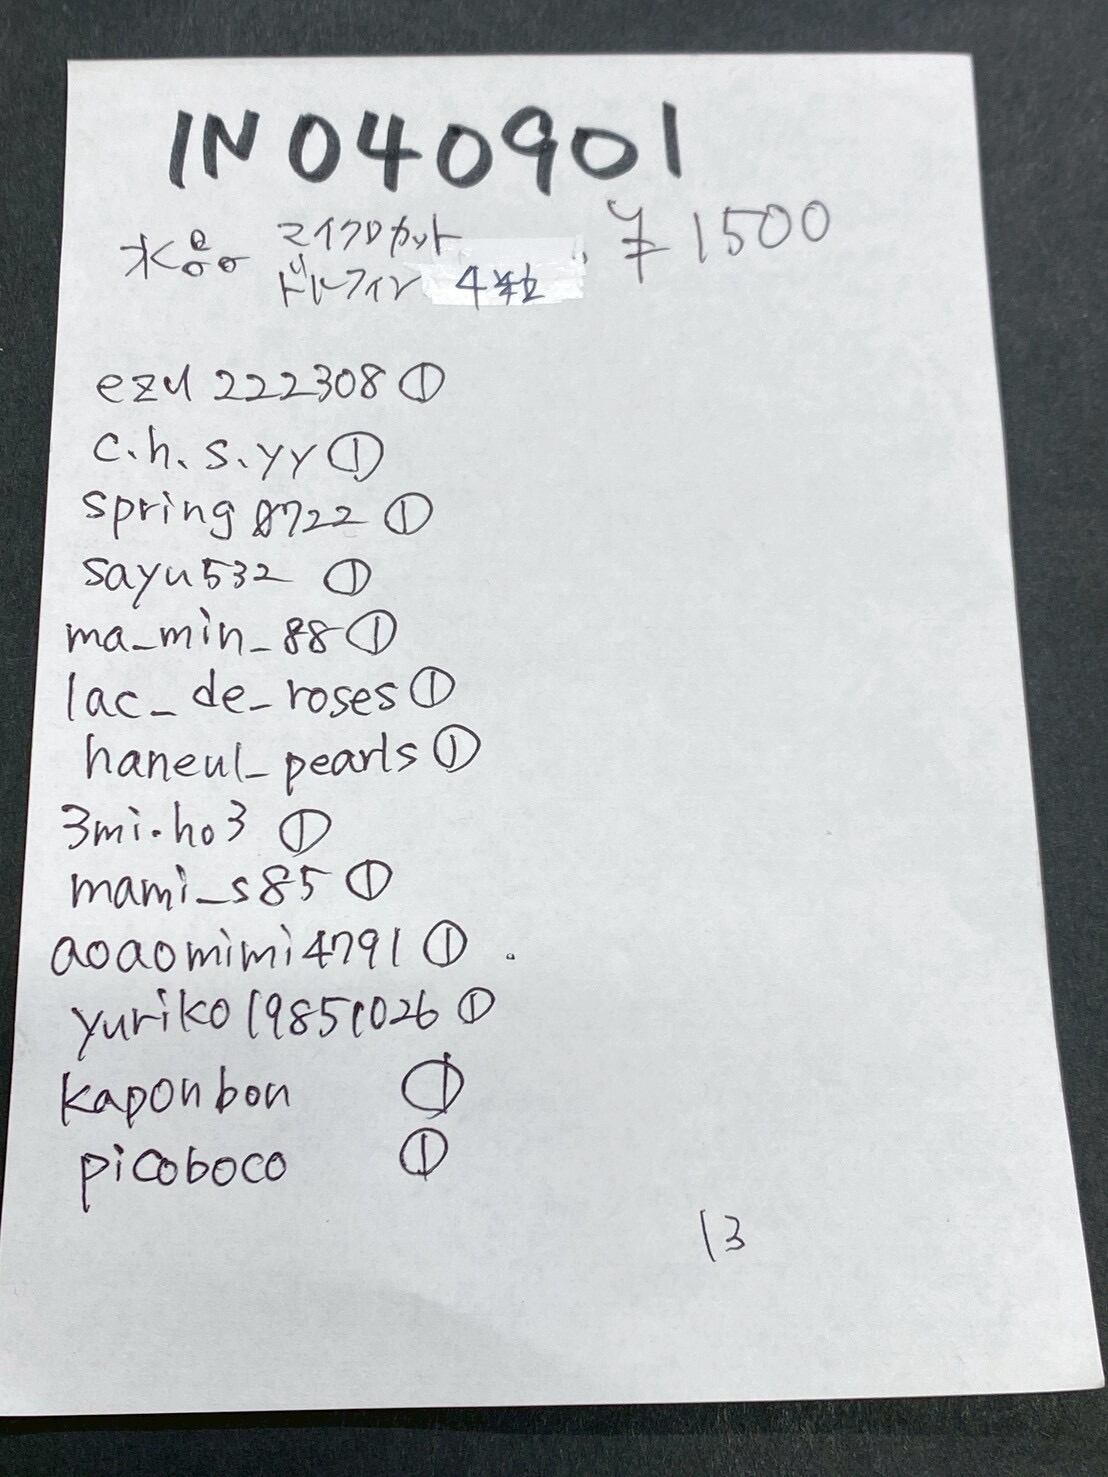 IN040901
水晶 マイクロカット ¥1500
ドルフィン 4粒
ezu222308 ①
c.h.s.yy ①
spring0722 ①
sayu532 ①
ma_min_88 ①
lac_de_roses ①
haneul_pearls ①
3mi.ho3 ①
mami_s85 ①
aoaomimi4791 ①
yuriko19851026 ①
kaponbon ①
picoboco ①
13